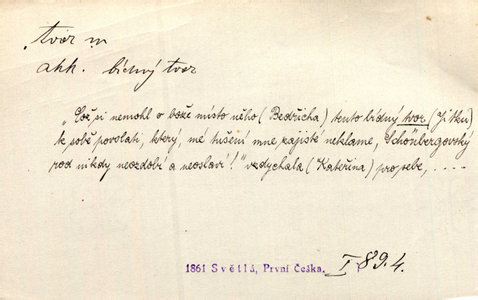 tvor m
akk. bídný tvor
„Což si nemohl o bože místo něho (Bedřicha) tento bídný tvor (Jitku)
k sobě povolati, který, mé tušení mne zajisté neklame, Schönbergovský
rod nikdy neozdobí a neoslaví!" vzdychala (Kateřina) pro sebe, ....
1861 Světlá, První Češka. I 89.4.